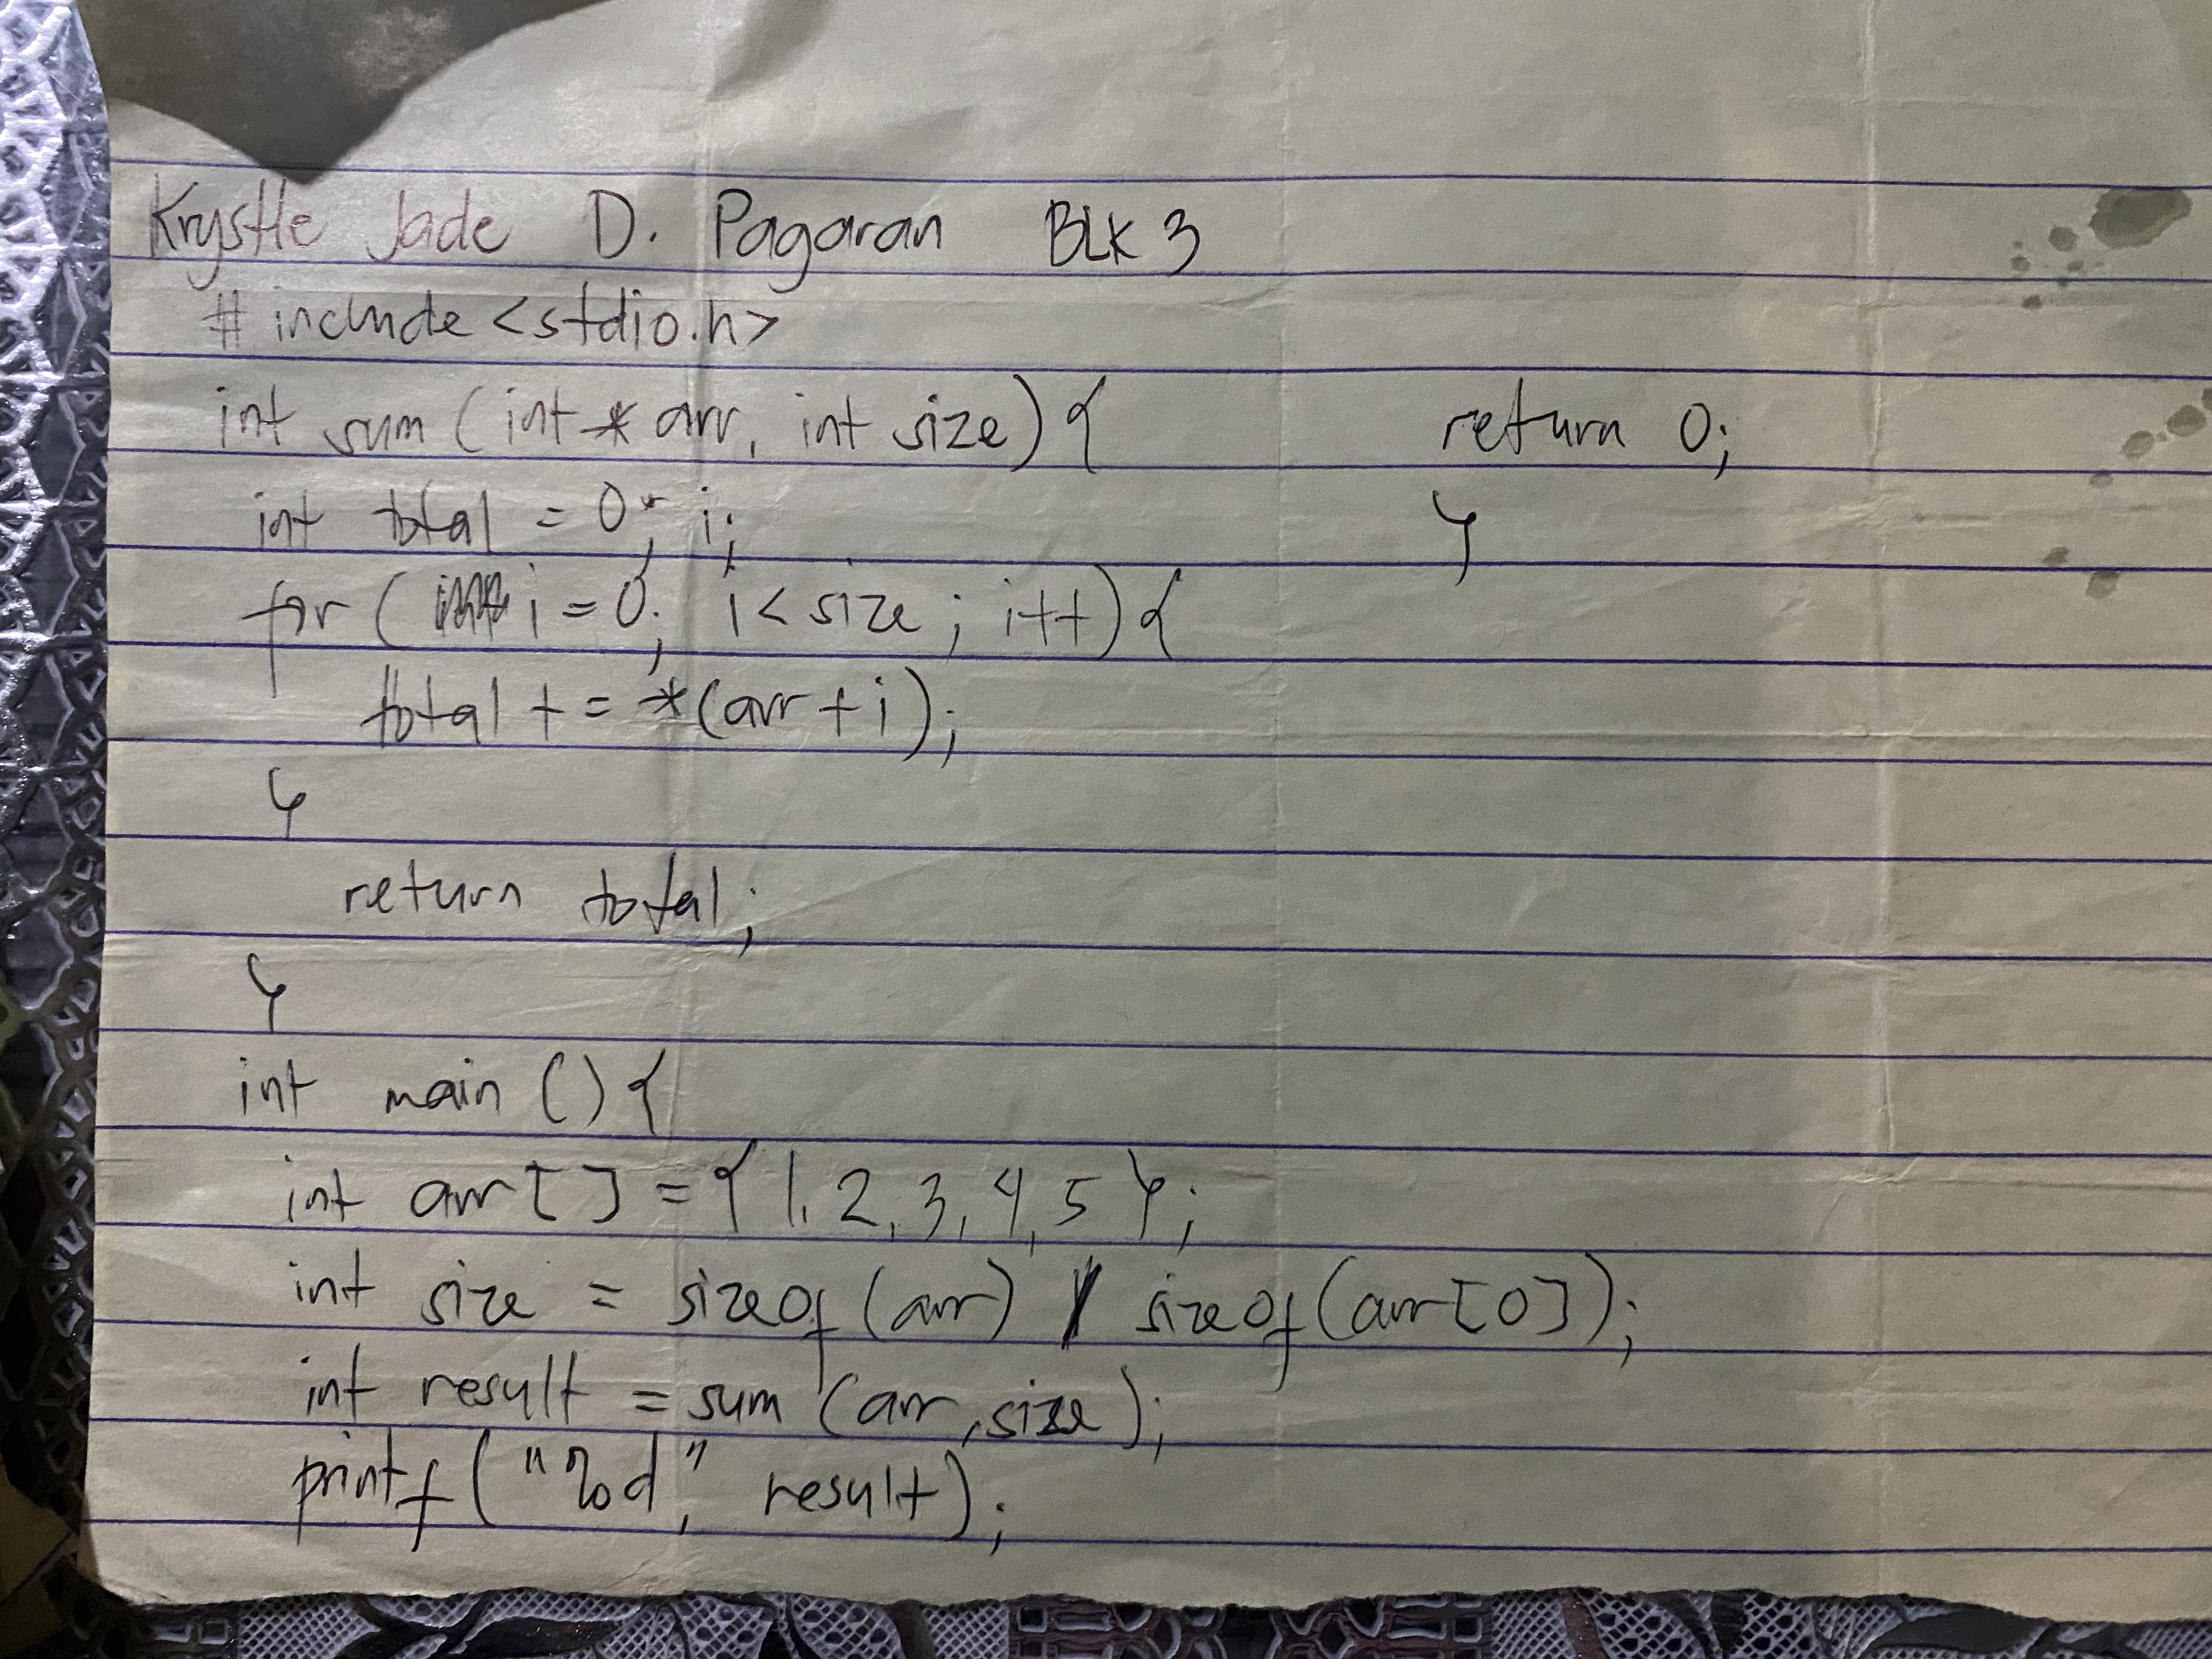 Krystle Jade D. Pagaran BLK 3
# include <stdio.h>
int sum (int * arr, int size) {
int total = 0; i;
for ( i = 0; i < size ; i++) {
total += *(arr + i);
}
return total;
}
int main () {
int arr [ ] = { 1, 2, 3, 4, 5 };
int size = sizeof (arr) / sizeof (arr [0]);
int result = sum (arr, size);
printf ("%d," result);
return 0;
}